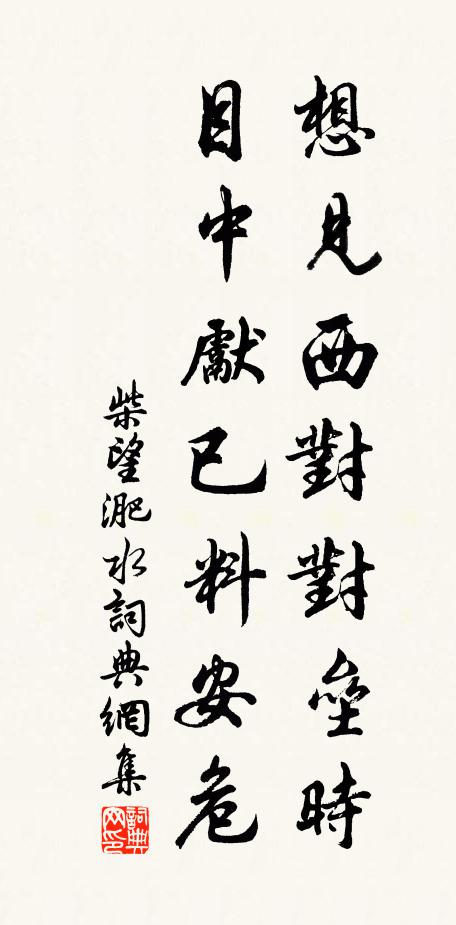 想見西對對垒時
目中獻已料安危
柴望淝水詞典網集
詞典网印